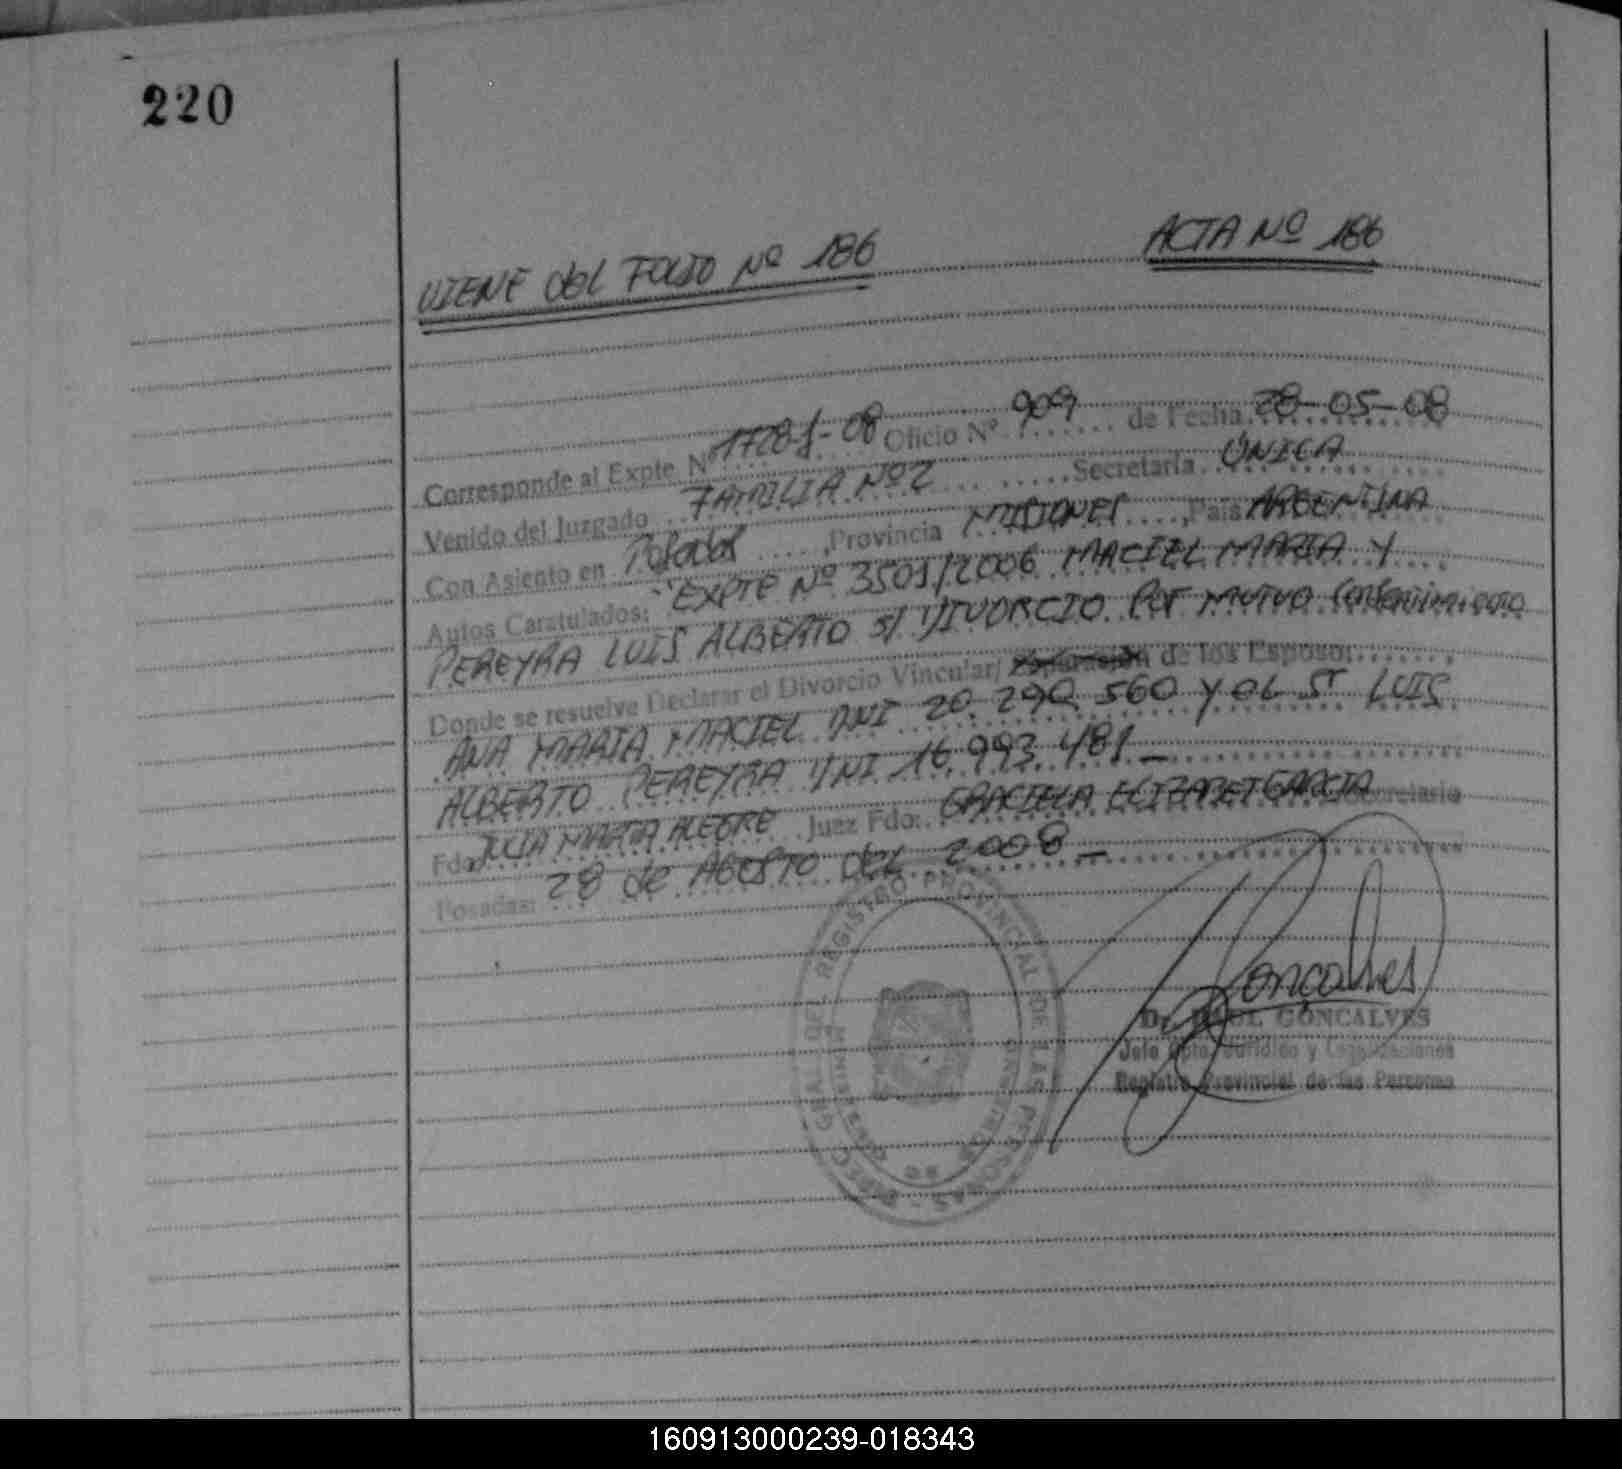 220
VIENE del FOLIO Nº 186
ACTA Nº 186
Corresponde al Expte Nº 17281-08 Oficio Nº 909 de Fecha 28-05-08
Venido del Juzgado FAMILIA Nº2 Secretaría ÚNICA
Con Asiento en Posadas, Provincia MISIONES, País ARGENTINA
Autos Caratulados: "EXPTE Nº 3501/2006 MACIEL MARIA Y
PEREYRA LUIS ALBERTO s/ DIVORCIO POR MUTUO Consentimiento
Donde se resuelve Declarar el Divorcio Vincular/ Separación de los Esposos
ANA MARIA MACIEL DNI 20.290.560 y el Sr LUIS
ALBERTO PEREYRA DNI 16.993.481 -
Fdo JULIA MARTA ALEGRE Juez Fdo: GRACIELA ELIZABET GARCIA Secretario
Posadas: 28 de AGOSTO del 2008 -
REGISTRO PROVINCIAL DE LAS PERSONAS
Goncalves
Dr. RAUL GONCALVES
Jefe Dpto. Jurídico y
Registro Provincial de las Personas
160913000239-018343